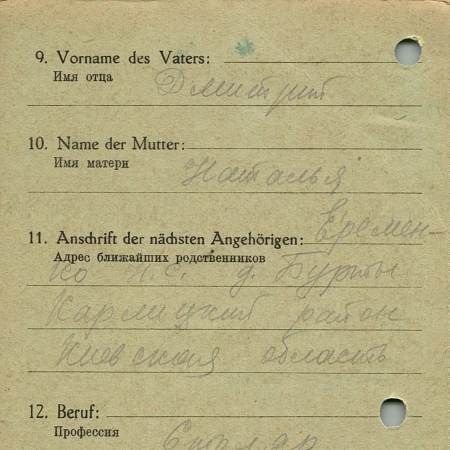 9. Vorname des Vaters:
Имя отца
Дмитрий
10. Name der Mutter:
Имя матери
Наталья
Еремен-
11. Anschrift der nächsten Angehörigen:
Адрес ближайших родственников
ко Н.С. д. Бурты
Карлицкий район
Киевская область
12. Beruf:
Профессия
Столяр